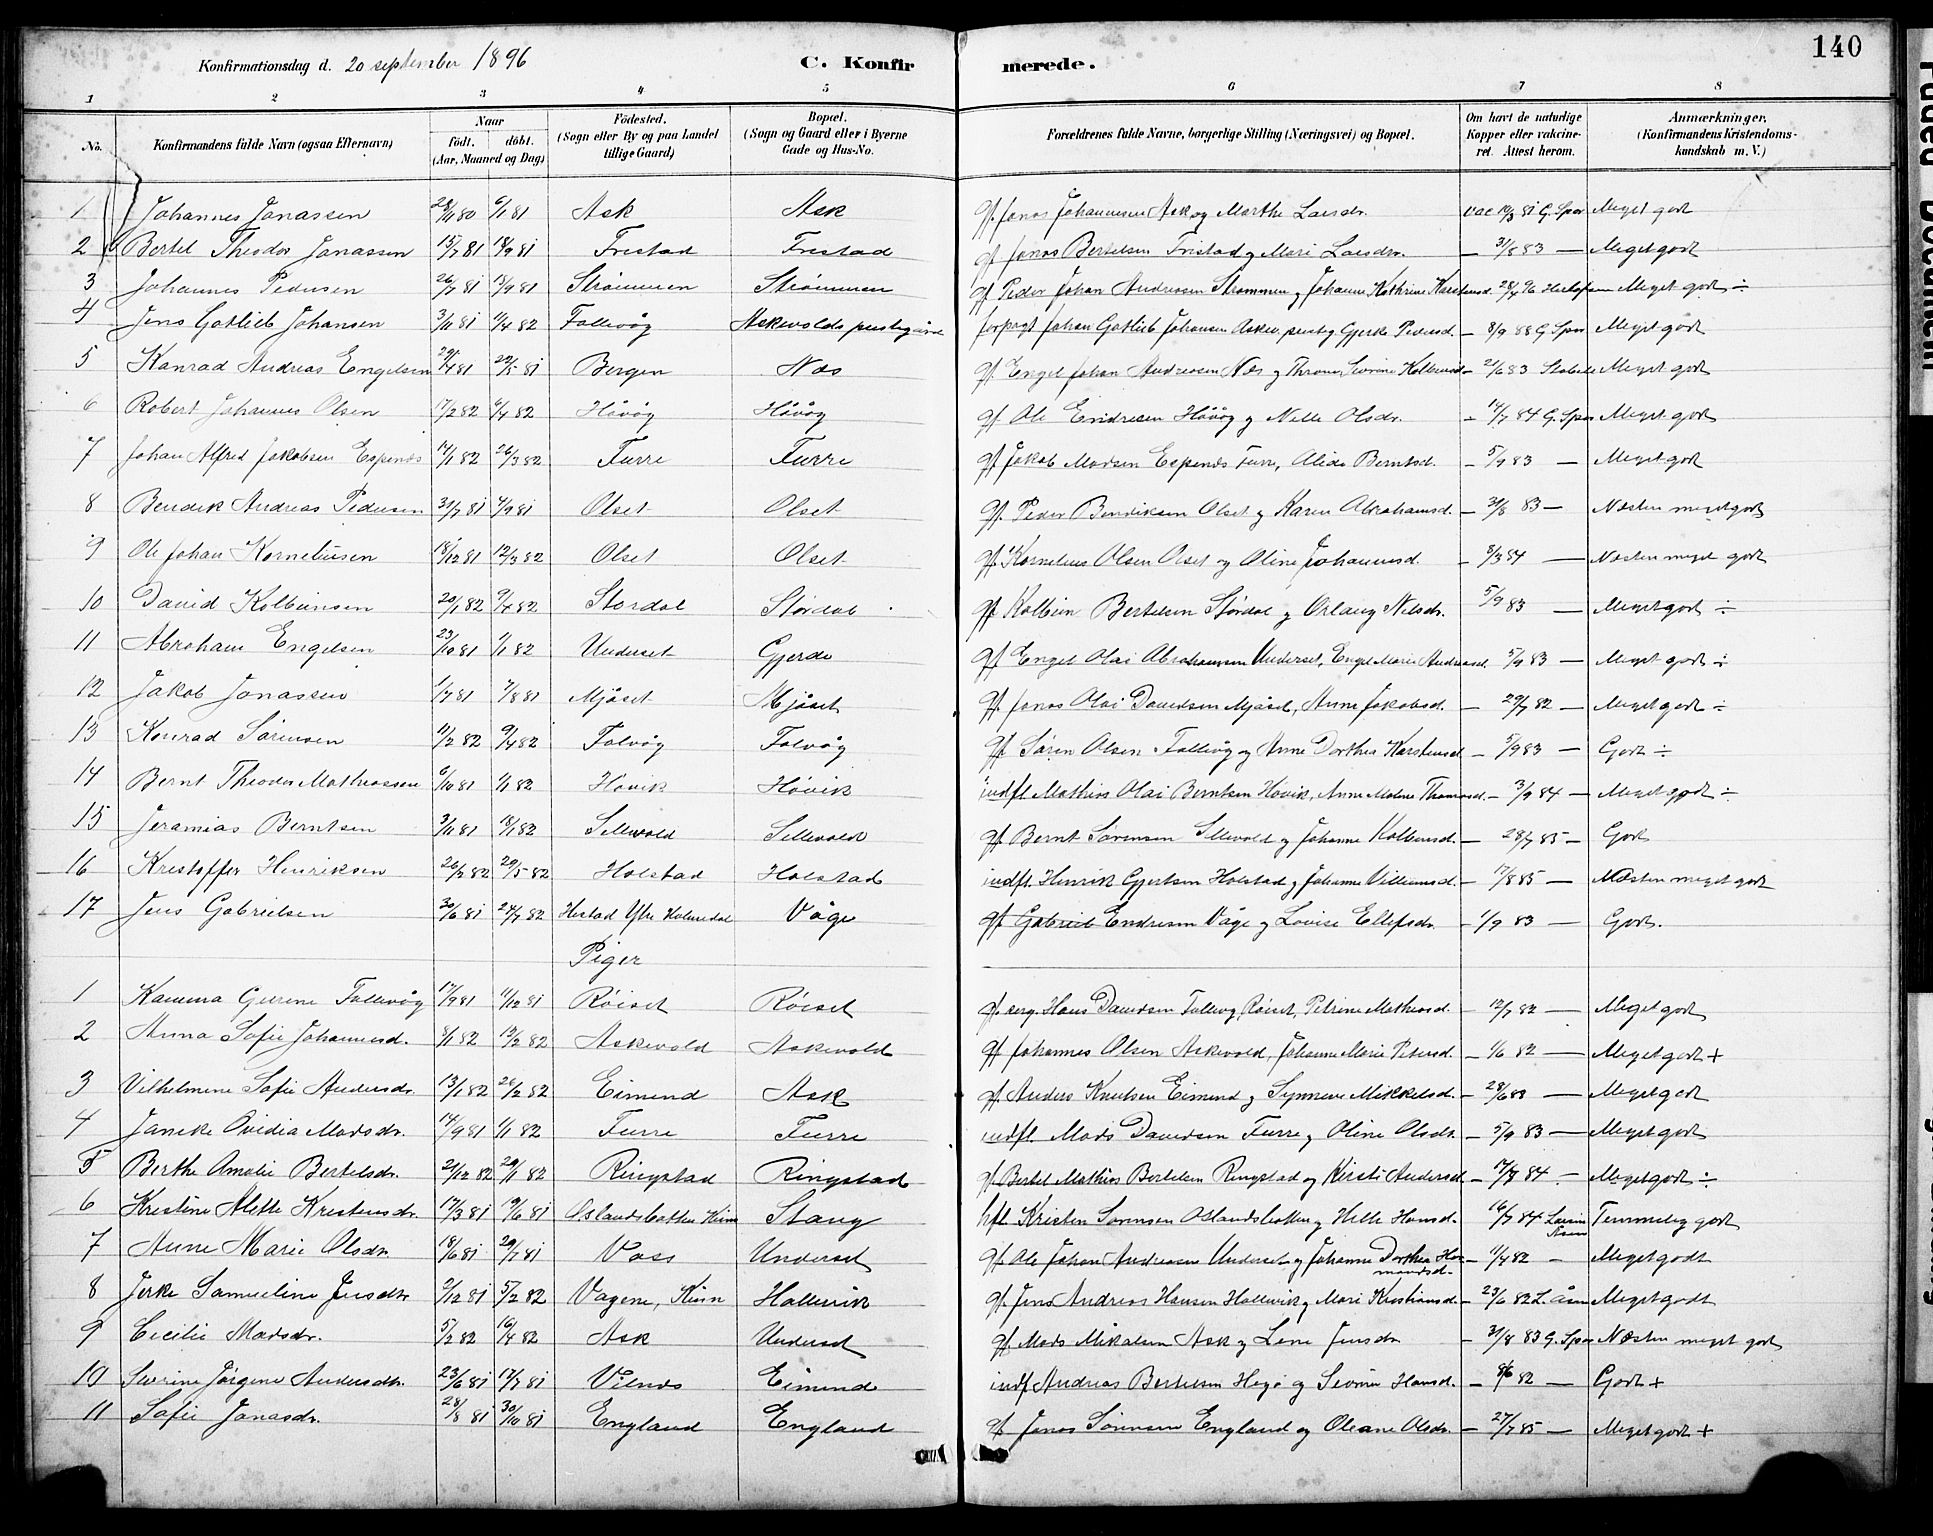 140
Konfirmationsdag d. 20 september 1896 C. Konfirmerede.
1 2 3 4 5 6 7 8
No. Konfirmandens fulde Navn (ogsaa Efternavn) Naar födt. döbt. (Aar, Maaned og Dag) Födested. (Sogn eller By og paa Landet tillige Gaard) Bopæl. (Sogn og Gaard eller i Byerne Gade og Hus-No. Forældrenes fulde Navne, borgerlige Stilling (Næringsvei) og Bopæl. Om havt de naturlige Kopper eller vakcineret. Attest herom. Anmærkninger. (Konfirmandens Kristendomskundskab m. V.)
1 Johannes Jonassen 28/11 80 6/1 81 Ask Ask gf. Jonas Johannesen Ask og Marthe Larsdr. vac 19/8 81 G. Spor Meget godt
2 Bertel Theodor Jonassen 15/7 81 18/9 81 Fristad Fristad gf Jonas Bertelsen Fristad og Mari Larsdr. – 31/8 83 — Meget godt
3 Johannes Pedersen 26/7 81 13/9 81 Strömmen Strömmen gf Peder Johan Andreasen Strømmen og Johanne Kathrine Karstensd. 28/4 96 Meget godt ÷
4 Jens Gotlieb Johansen 3/11 81 1/4 82 Follevåg Askevolds prestegård forpagt Johan Gotlieb Johansen Askev. prestg. Gjerke Pedersd. – 8/9 88 G. Spor Meget godt
5 Konrad Andreas Engelsen 29/4 81 22/5 81 Bergen Nes gf. Engel Johan Andreasen Nes og – 21/6 83 Meget godt
6 Robert Johannes Olsen 17/2 82 6/4 82 Håvåg Håvåg gf Ole Endresen Håvåg og Nille Olsdr. – 14/7 84 G. Spor Meget godt
7 Johan Alfred Jakobsen Espenes 14/1 82 26/3 82 Furre Furre gf Jakob Madsen Espenes Furre, Alida Berntsd. – 5/9 83 — Meget godt
8 Bendik Andreas Pedersen 31/7 81 4/9 81 Olset Olset gf. Peder Bendiksen Olset og Karen Abrahamsd. – 31/8 83 — Næsten meget godt
9 Ole Johan Korneliusen 18/12 81 12/3 82 Olset Olset gf. Kornelius Olsen Olset og Oline Johannesd. – 3/3 84 — Næsten meget godt
10 David Kolbeinsen 20/1 82 9/4 82 Stordal Stórdal gf Kolbein Bertelsen Stórdal og Orlaug Nilsdr. 5/9 83 — Meget godt ÷
11 Abraham Engelsen 23/10 81 1/1 82 Underset Gjerde gf Engel Olai Abrahamsen Underset, Engel Marie Andersd. 5/9 83 — Meget godt ÷
12 Jakob Jonassen 1/7 81 7/8 81 Mjåset Mjåset gf. Jonas Olai Davidsen Mjåset, Anne Jakobsd. – 29/7 82 — Meget godt ÷
13 Konrad Sörensen 11/2 82 9/4 82 Folvåg Folvåg gf Sören Olsen Follevåg og Anne Dorthea Karstensd. – 5/9 83 — Godt ÷
14 Bernt Theodor Mathiassen 6/10 81 1/1 82 Hövik Hövik indfl. Mathias Olai Berntsen Hövik, Anne Malene Thomasd. – 3/9 84 — Meget godt ÷
15 Jeramias Berntsen 3/11 81 18/1 82 Sellevold Sellevold gf Bernt Sörensen Sellevold og Johanne Kolbeinsd. – 28/7 85 – Godt
16 Kristoffer Henriksen 26/2 82 29/5 82 Holstad Holstad indfl. Henrik Gjertsen Holstad og Johanne Villumsd. – 17/8 85 — Næsten meget godt
17 Jens Gabrielsen 30/6 81 24/7 82 Hestad Ytre Holmedal Våge gf. Gabriel Endresen Våge og Lovise Ellefsdr. – 1/9 83 — Godt.
Piger
1 Kamma Gurine Follevåg 17/9 81 11/12 81 Röiset Röiset gf. serg. Hans Davidsen Follevåg, Röiset, Petrine Mathiasd. – 12/7 82 — Meget godt
2 Anna Sofie Johannesd. 8/1 82 12/2 82 Askevold Askevold gf Johannes Olsen Askevold, Johanne Marie Petersd. – 1/6 82 — Meget godt +
3 Vilhelmine Sofie Andersdr. 13/1 82 26/2 82 Eimend Ask gf. Anders Knutsen Eimend og Synneve Mikkelsd. – 28/6 83 — Meget godt
4 Janeke Ovidia Madsdr. 14/9 81 1/1 82 Furre Furre indfl. Mads Davidsen Furre og Oline Olsdr. – 5/9 83 — Meget godt
5 Berthe Amalie Bertelsdr. 21/12 82 29/1 82 Ringstad Ringstad gf. Bertel Mathias Bertelsen Ringstad og Kirsti Andersd. – 17/8 84 – Meget godt ÷
6 Kristine Alette Kristensdr. 17/3 81 19/6 81 Oslandsbotten Kinn Stang hfl. Kristen Sörensen Oslandsbotten og Helle Hansd. – 16/7 84 Temmelig godt
7 Anne Marie Olsdr. 18/6 81 29/7 81 Voss Underset gf. Ole Johan Andreasen Underset og Johanne Dorthea Hermansd. – 1/7 82 – Meget godt
8 Jerke Samueline Jensdtr 9/12 81 5/2 82 Vagene, Kinn Hallevik gf. Jens Andreas Hansen Hallevik og Mari Kristiansd. – 23/6 82 L. Åsen Meget godt
9 Cecilie Madsdr. 5/2 82 16/4 82 Ask Underset gf. Mads Mikalsen Ask og Lene Jensdr – 31/8 83 G. Spor Næsten meget godt
10 Sevrine Jörgine Andersdtr. 23/6 81 17/7 81 Vilnes Eimend indf Andreas Bertelsen Hegö og Sevrine Hansd. – 8/6 82 — Godt +
11 Sofie Jonasdr. 28/8 81 30/10 81 England England gf Jonas Sörensen England og Oleane Olsdr. – 27/7 85 — Meget godt +